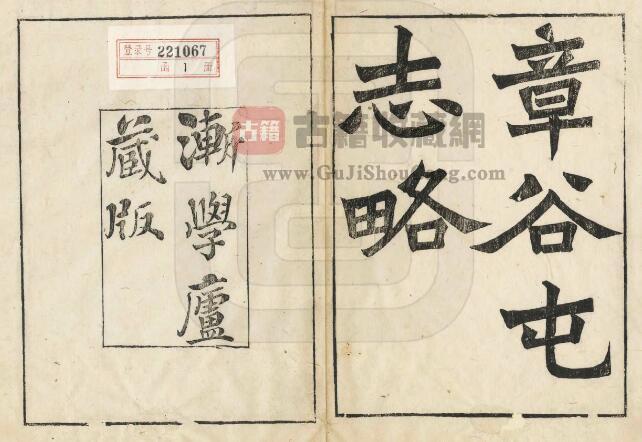 章谷屯
志略
漸學廬
藏版
登录号 221067
函 1 册
古籍
古籍收藏網
www.GuJiShouCang.com